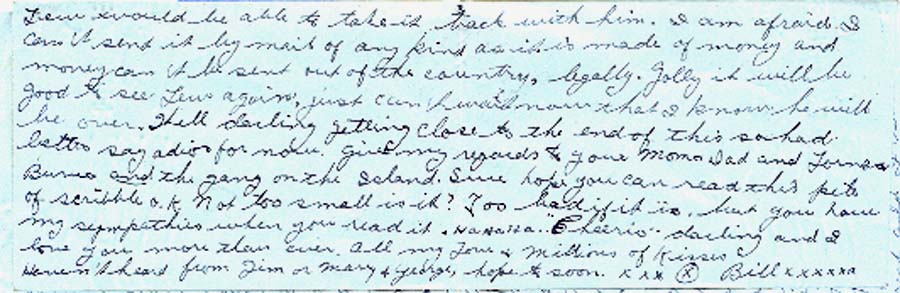 Lew would be able to take it back with him. I am afraid I
can't send it by mail of any kind as it is made of money and
money can't be sent out of the country, legally. Golly it will be
good to see Lew again, just can't wait now that I know he will
be over. Well darling getting close to the end of this so had
better say adios for now. Give my regards to your Mom & Dad and
Burns and the gang on the Island. Sure hope you can read this bit
of scribble o.k. Not too small is it? Too bad if it is, but you have
my sympathies when you read it. Ha Ha Ha. Cheerio darling and I
love you more than ever. All my Love & Millions of Kisses
Haven't heard from Jim or Mary & George, hope to soon. x x x (x) Bill x x x x x x